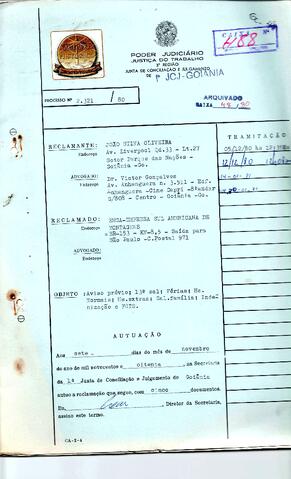 CAIXA
488
PODER JUDICIÁRIO
JUSTIÇA DO TRABALHO
3ª REGIÃO
JUNTA DE CONCILIAÇÃO E JULGAMENTO
DE 1ª JCJ-GOIÂNIA
PROCESSO Nº 2.321 / 80
ARQUIVADO
CAIXA 48,80
RECLAMANTE: JOÃO SILVA OLIVEIRA
Endereço Av. Liverpool Qd.33 - Lt.27
Setor Parque das Nações-
Goiânia -Go.
ADVOGADO: Dr. Victor Gonçalves
Endereço Av. Anhanguera n. 3.511 - Edf.
Anhanguera -Cine Capri -8ºandar
S/808 - Centro - Goiânia -Go.
RECLAMADO: EMSA-EMPRESA SUL AMERICANA DE
MONTAGENS
Endereço BR-153 - KM-8,5 - Saída para
São Paulo -C.Postal 971
ADVOGADO:
Endereço
OBJETO: Aviso prévio; 13º sal; Férias; Hs.
Normais; Hs.extras; Sal.família; Inde
nização e FGTS.
TRAMITAÇÃO
05/12/80
12/12/80
AUTUAÇÃO
Aos sete dias do mês de novembro
do ano de mil novecentos e oitenta, na Secretaria
da 1ª Junta de Conciliação e Julgamento de Goiânia
autuo a reclamação que segue, com cinco documentos.
Eu, Diretor da Secretaria,
assino este termo.
CA-I-A